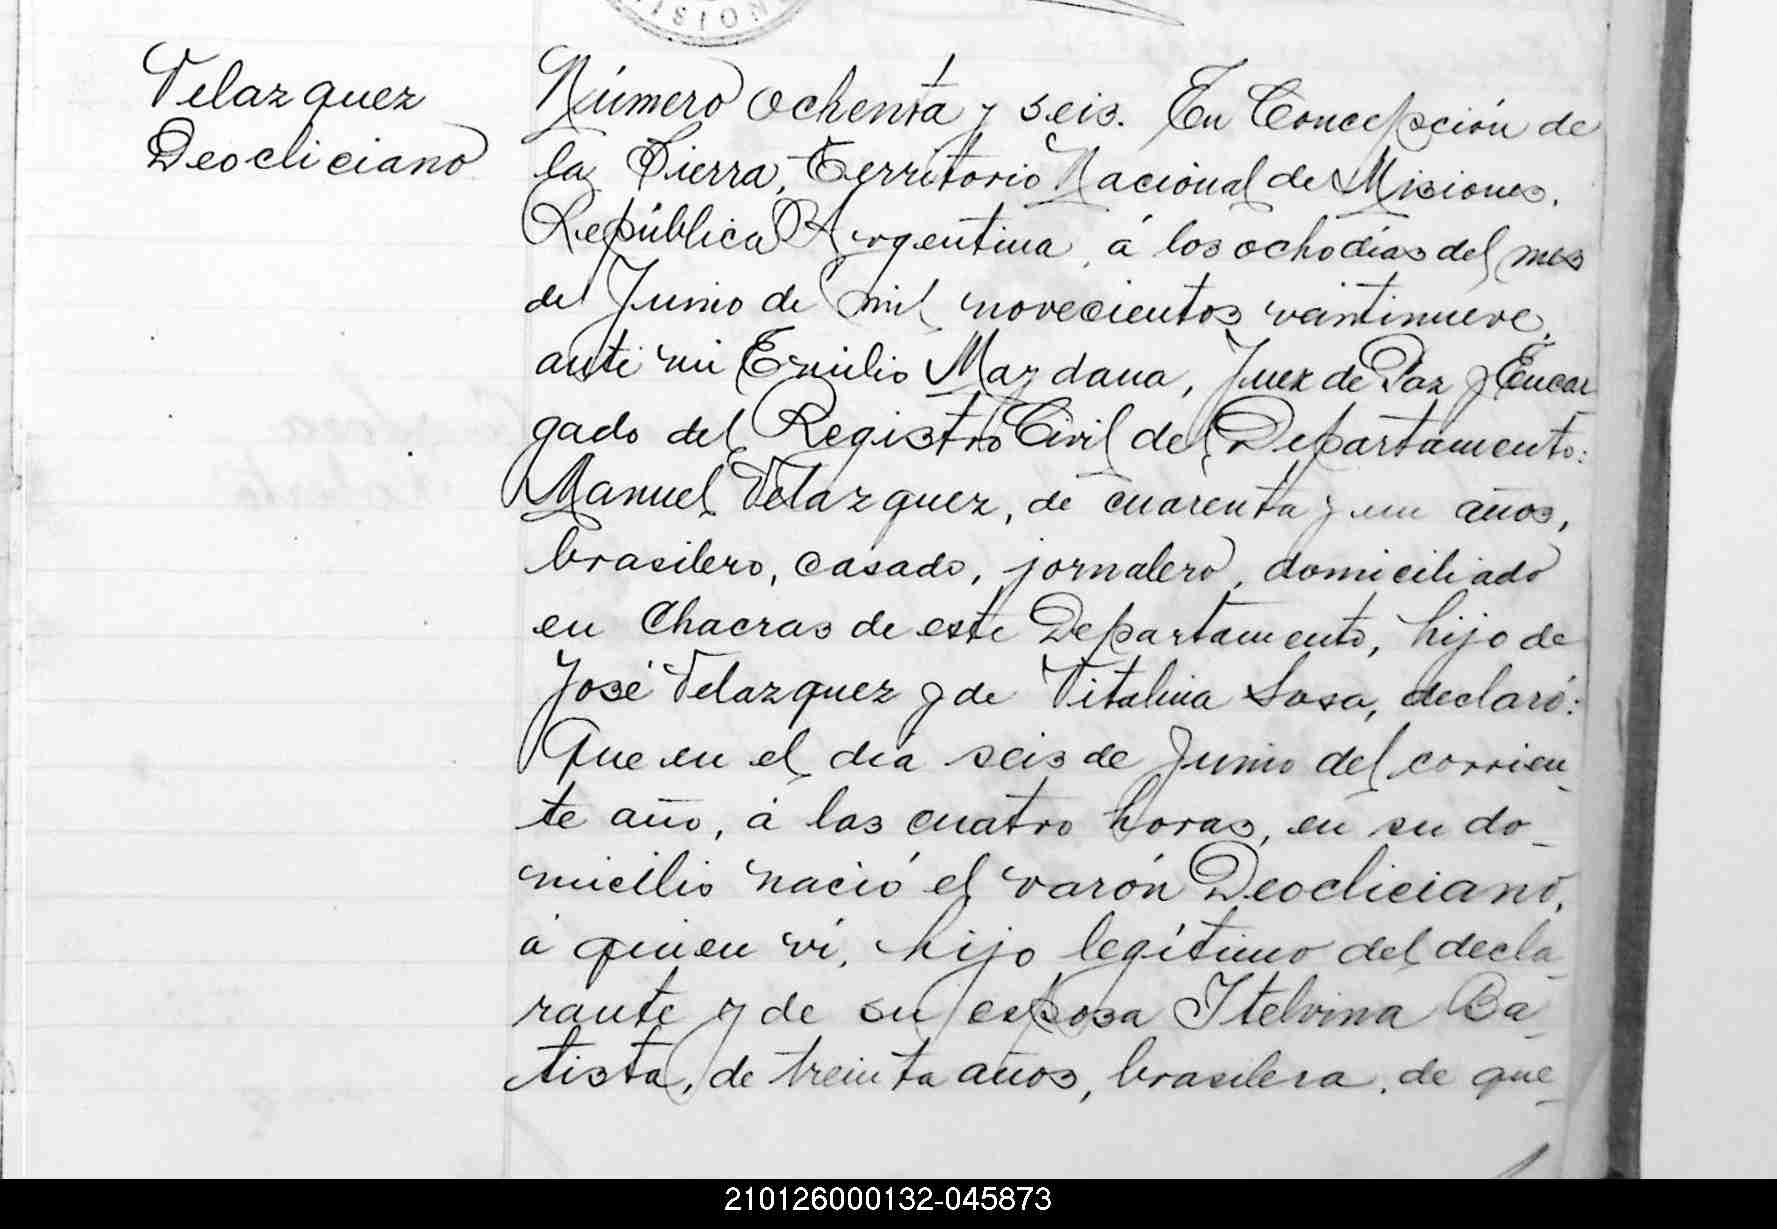 Velazquez
Deocliciano
Número ochenta y seis. En Concepción de
la Sierra, Territorio Nacional de Misiones,
República Argentina, á los ocho dias del mes
de Junio de mil novecientos veintinueve,
ante mi Emilio Maydana, Juez de Paz y Encar
gado del Registro Civil del Departamento:
Manuel Velazquez, de cuarenta y un años,
brasilero, casado, jornalero, domiciliado
en Chacras de este Departamento, hijo de
José Velazquez y de Vitalina Sosa, declaró:
Que en el día seis de Junio del corrien-
te año, á las cuatro horas, en su do-
micilio nació el varón Deocliciano,
á quien ví, hijo legítimo del decla-
rante y de su esposa Itelvina Ba-
tista, de treinta años, brasilera, de que-
210126000132-045873